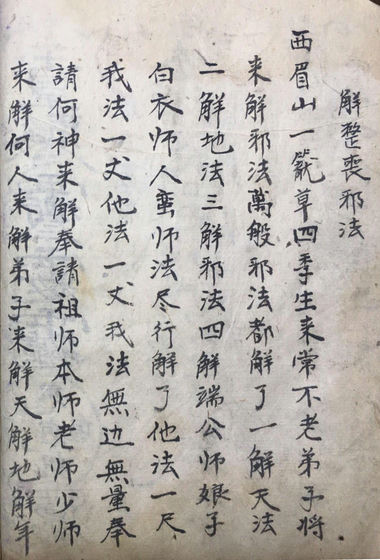 解整丧邪法
西眉山一篼草四季生来常不老弟子将
来解邪法萬般邪法都解了一解天法
二解地法三解邪法四解端公师娘子
白衣师人蛮师法尽行解了他法一尺
我法一丈他法一丈我法無边無量奉
請何神来解奉請祖师本师老师少师
来解何人来解弟子来解天解地解年